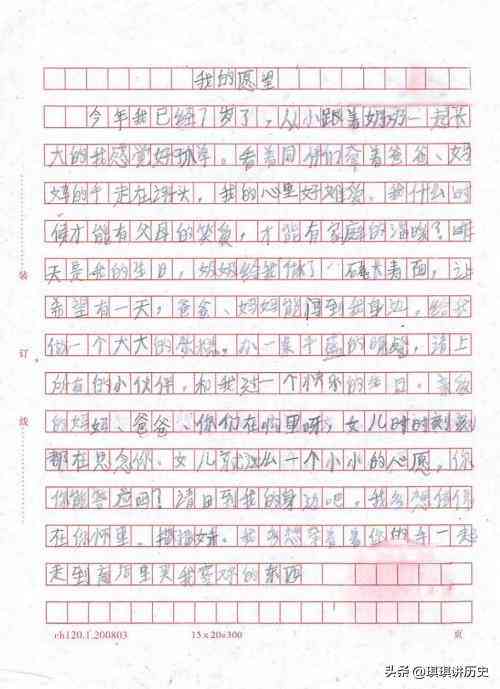 我的愿望
今年我已经7岁了，从小跟着妈妈一起长
大的我感觉好孤单。看着同伴们牵着爸爸、妈
妈的手走在街头，我的心里好难受。我什么时
候才能有父母的关爱，才能有家庭的温暖？昨
天是我的生日，妈妈给我做了一碗长寿面，
希望有一天，爸爸、妈妈能回到我身边，给我
做一个大大的蛋糕，请上
所有的小伙伴，和我过一个快乐的生日。亲爱
的妈妈、爸爸、你们在哪里呀，女儿时时刻刻
都在思念你、女儿就这么一个小小的心愿，你
你能答应吗？请回到我的身边吧，我多想
在你怀里，我多想牵着你的手一起
走到商场里买我喜欢的东西
装
订
线
ch120.1.200803
15x20=300
页
头条 @琪琪讲历史